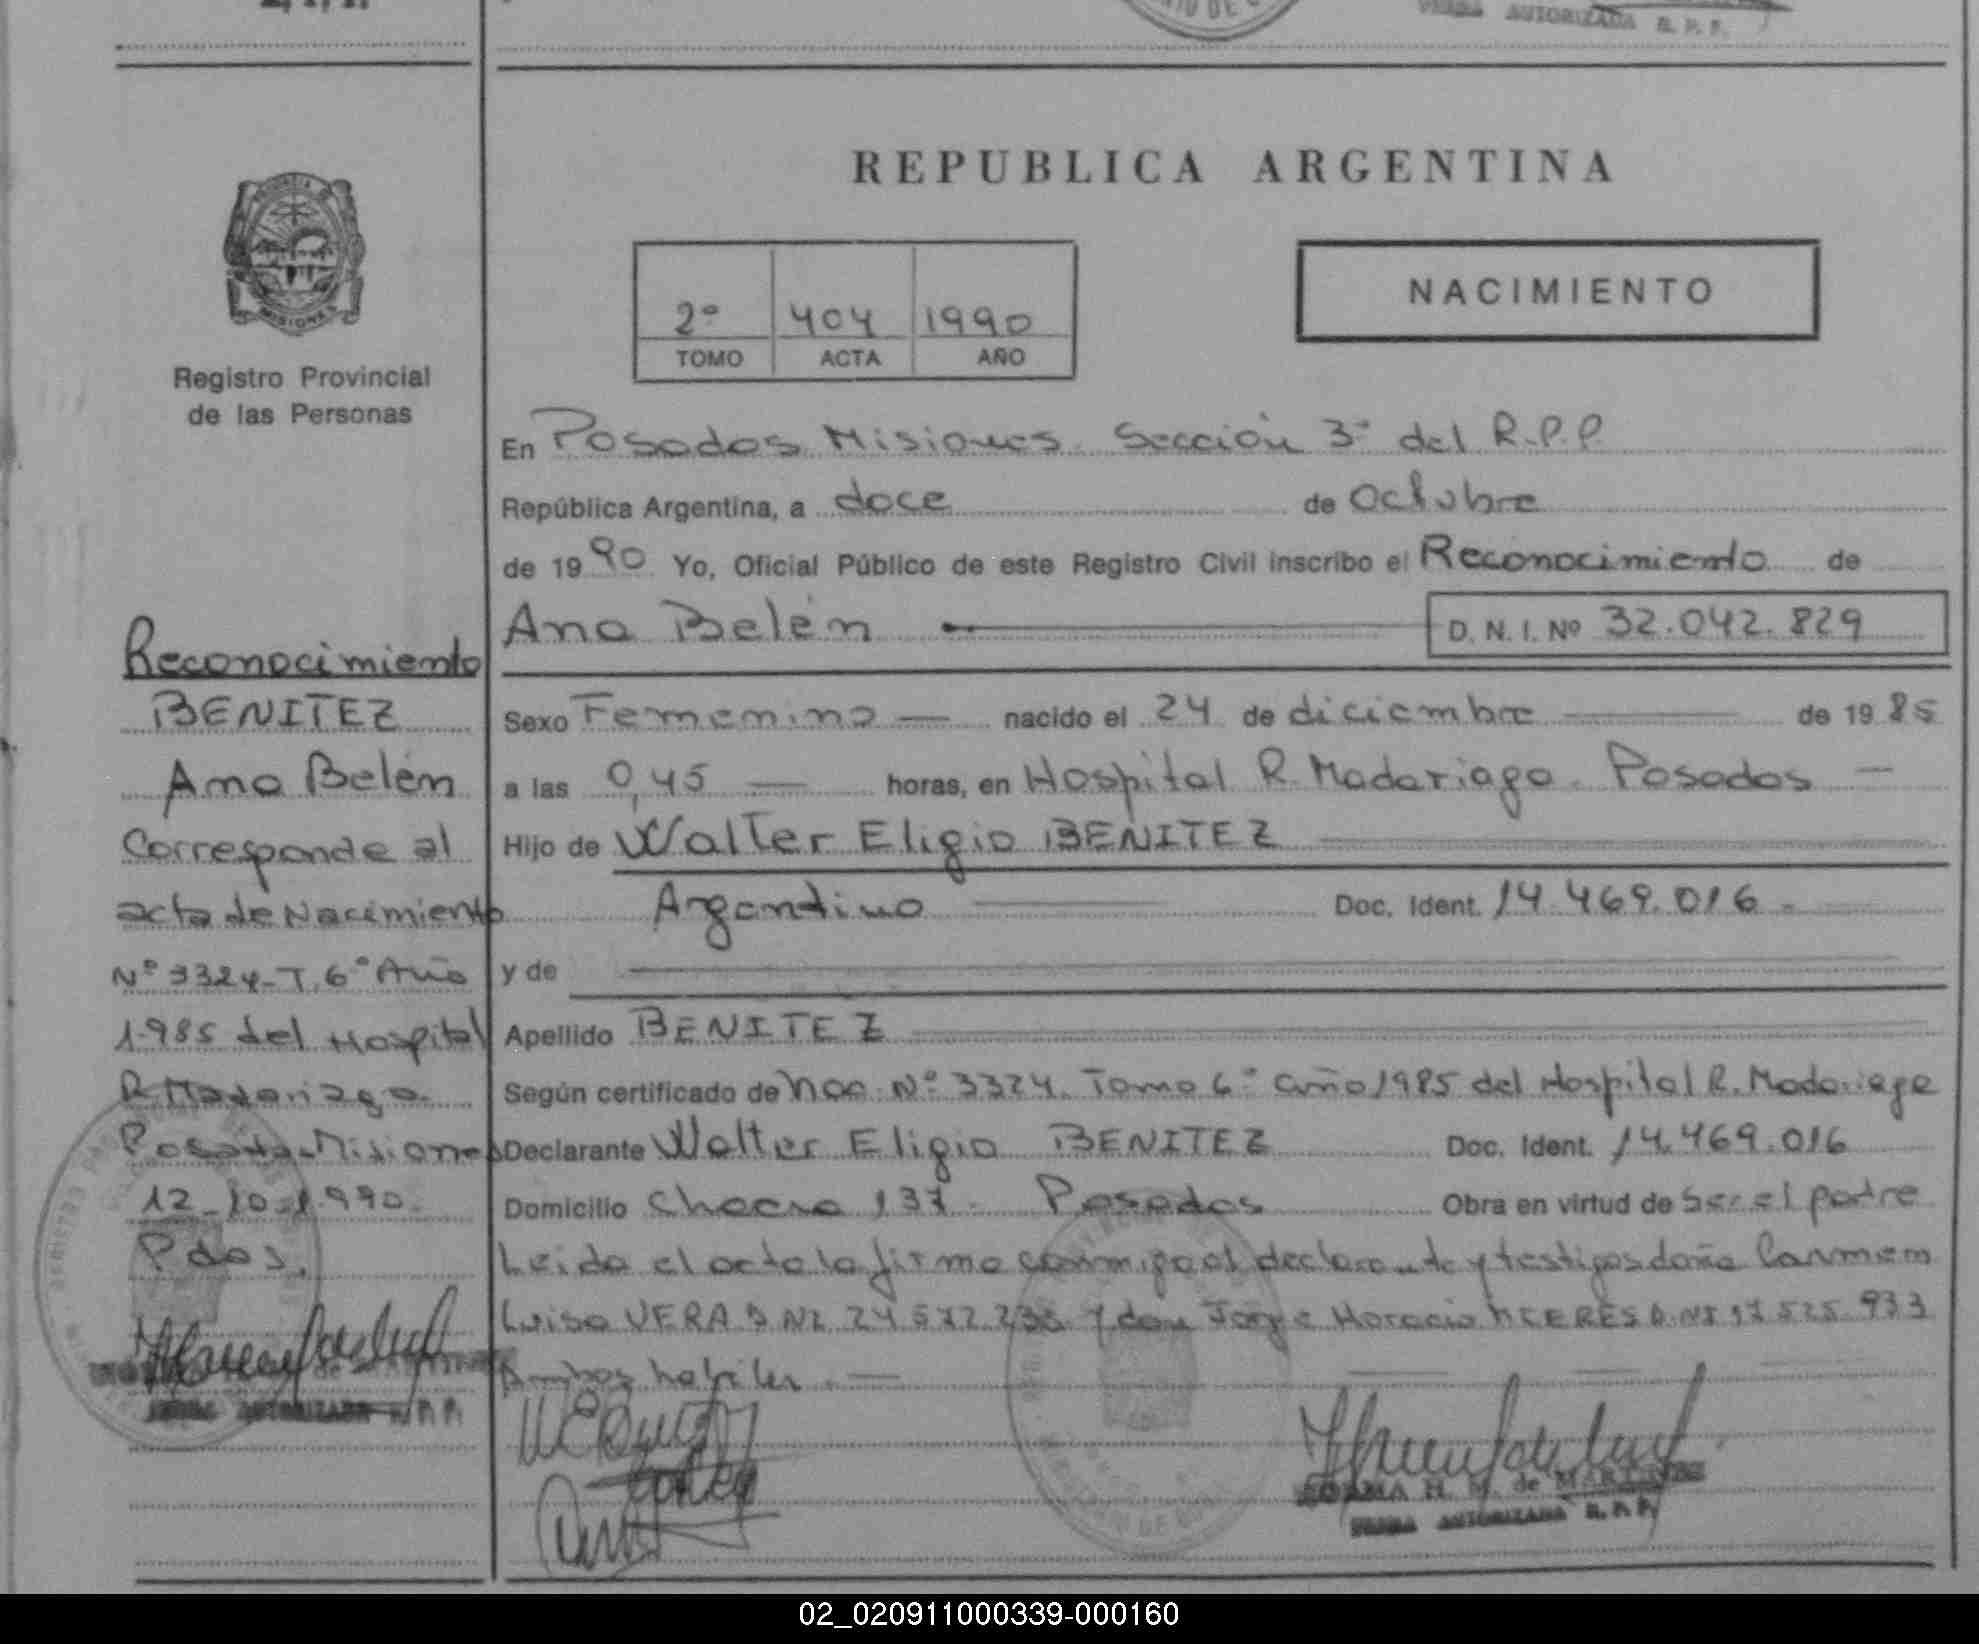 FIRMA AUTORIZADA R. P. P.
REPUBLICA ARGENTINA
NACIMIENTO
2º 404 1990
TOMO ACTA AÑO
MISIONES
Registro Provincial
de las Personas
Reconocimiento
BENITEZ
Ana Belén
Corresponde al
acta de Nacimiento
Nº 3324-T.6º Año
1985 del Hospital
R. Madariaga.
Posadas Misiones
12-10-1990.
Pdas,
FIRMA AUTORIZADA R. P. P.
En Posadas Misiones. Sección 3º del R.P.P.
República Argentina, a doce de Octubre
de 1990 Yo, Oficial Público de este Registro Civil inscribo el Reconocimiento de
Ana Belén — D. N. I. Nº 32.042.829
Sexo Femenino — nacido el 24 de diciembre — de 1985
a las 0,45 — horas, en Hospital R. Madariaga. Posadas —
Hijo de Walter Eligio BENITEZ
Argentino — Doc. Ident. 14.469.016.
y de —
Apellido BENITEZ
Según certificado de nac. Nº 3324. Tomo 6º año 1985 del Hospital R. Madariaga
Declarante Walter Eligio BENITEZ Doc. Ident. 14.469.016
Domicilio Chacra 137. Posadas Obra en virtud de ser el padre
Leida el acta la firma conmigo el declarante y testigos doña Carmen
Luisa VERA D NI 24 572 238 y don Jorge Horacio D.NI 17.525.933
Ambos habiles. —
NORMA H. M. de MARTINEZ
FIRMA AUTORIZADA R. P. P.
02_020911000339-000160